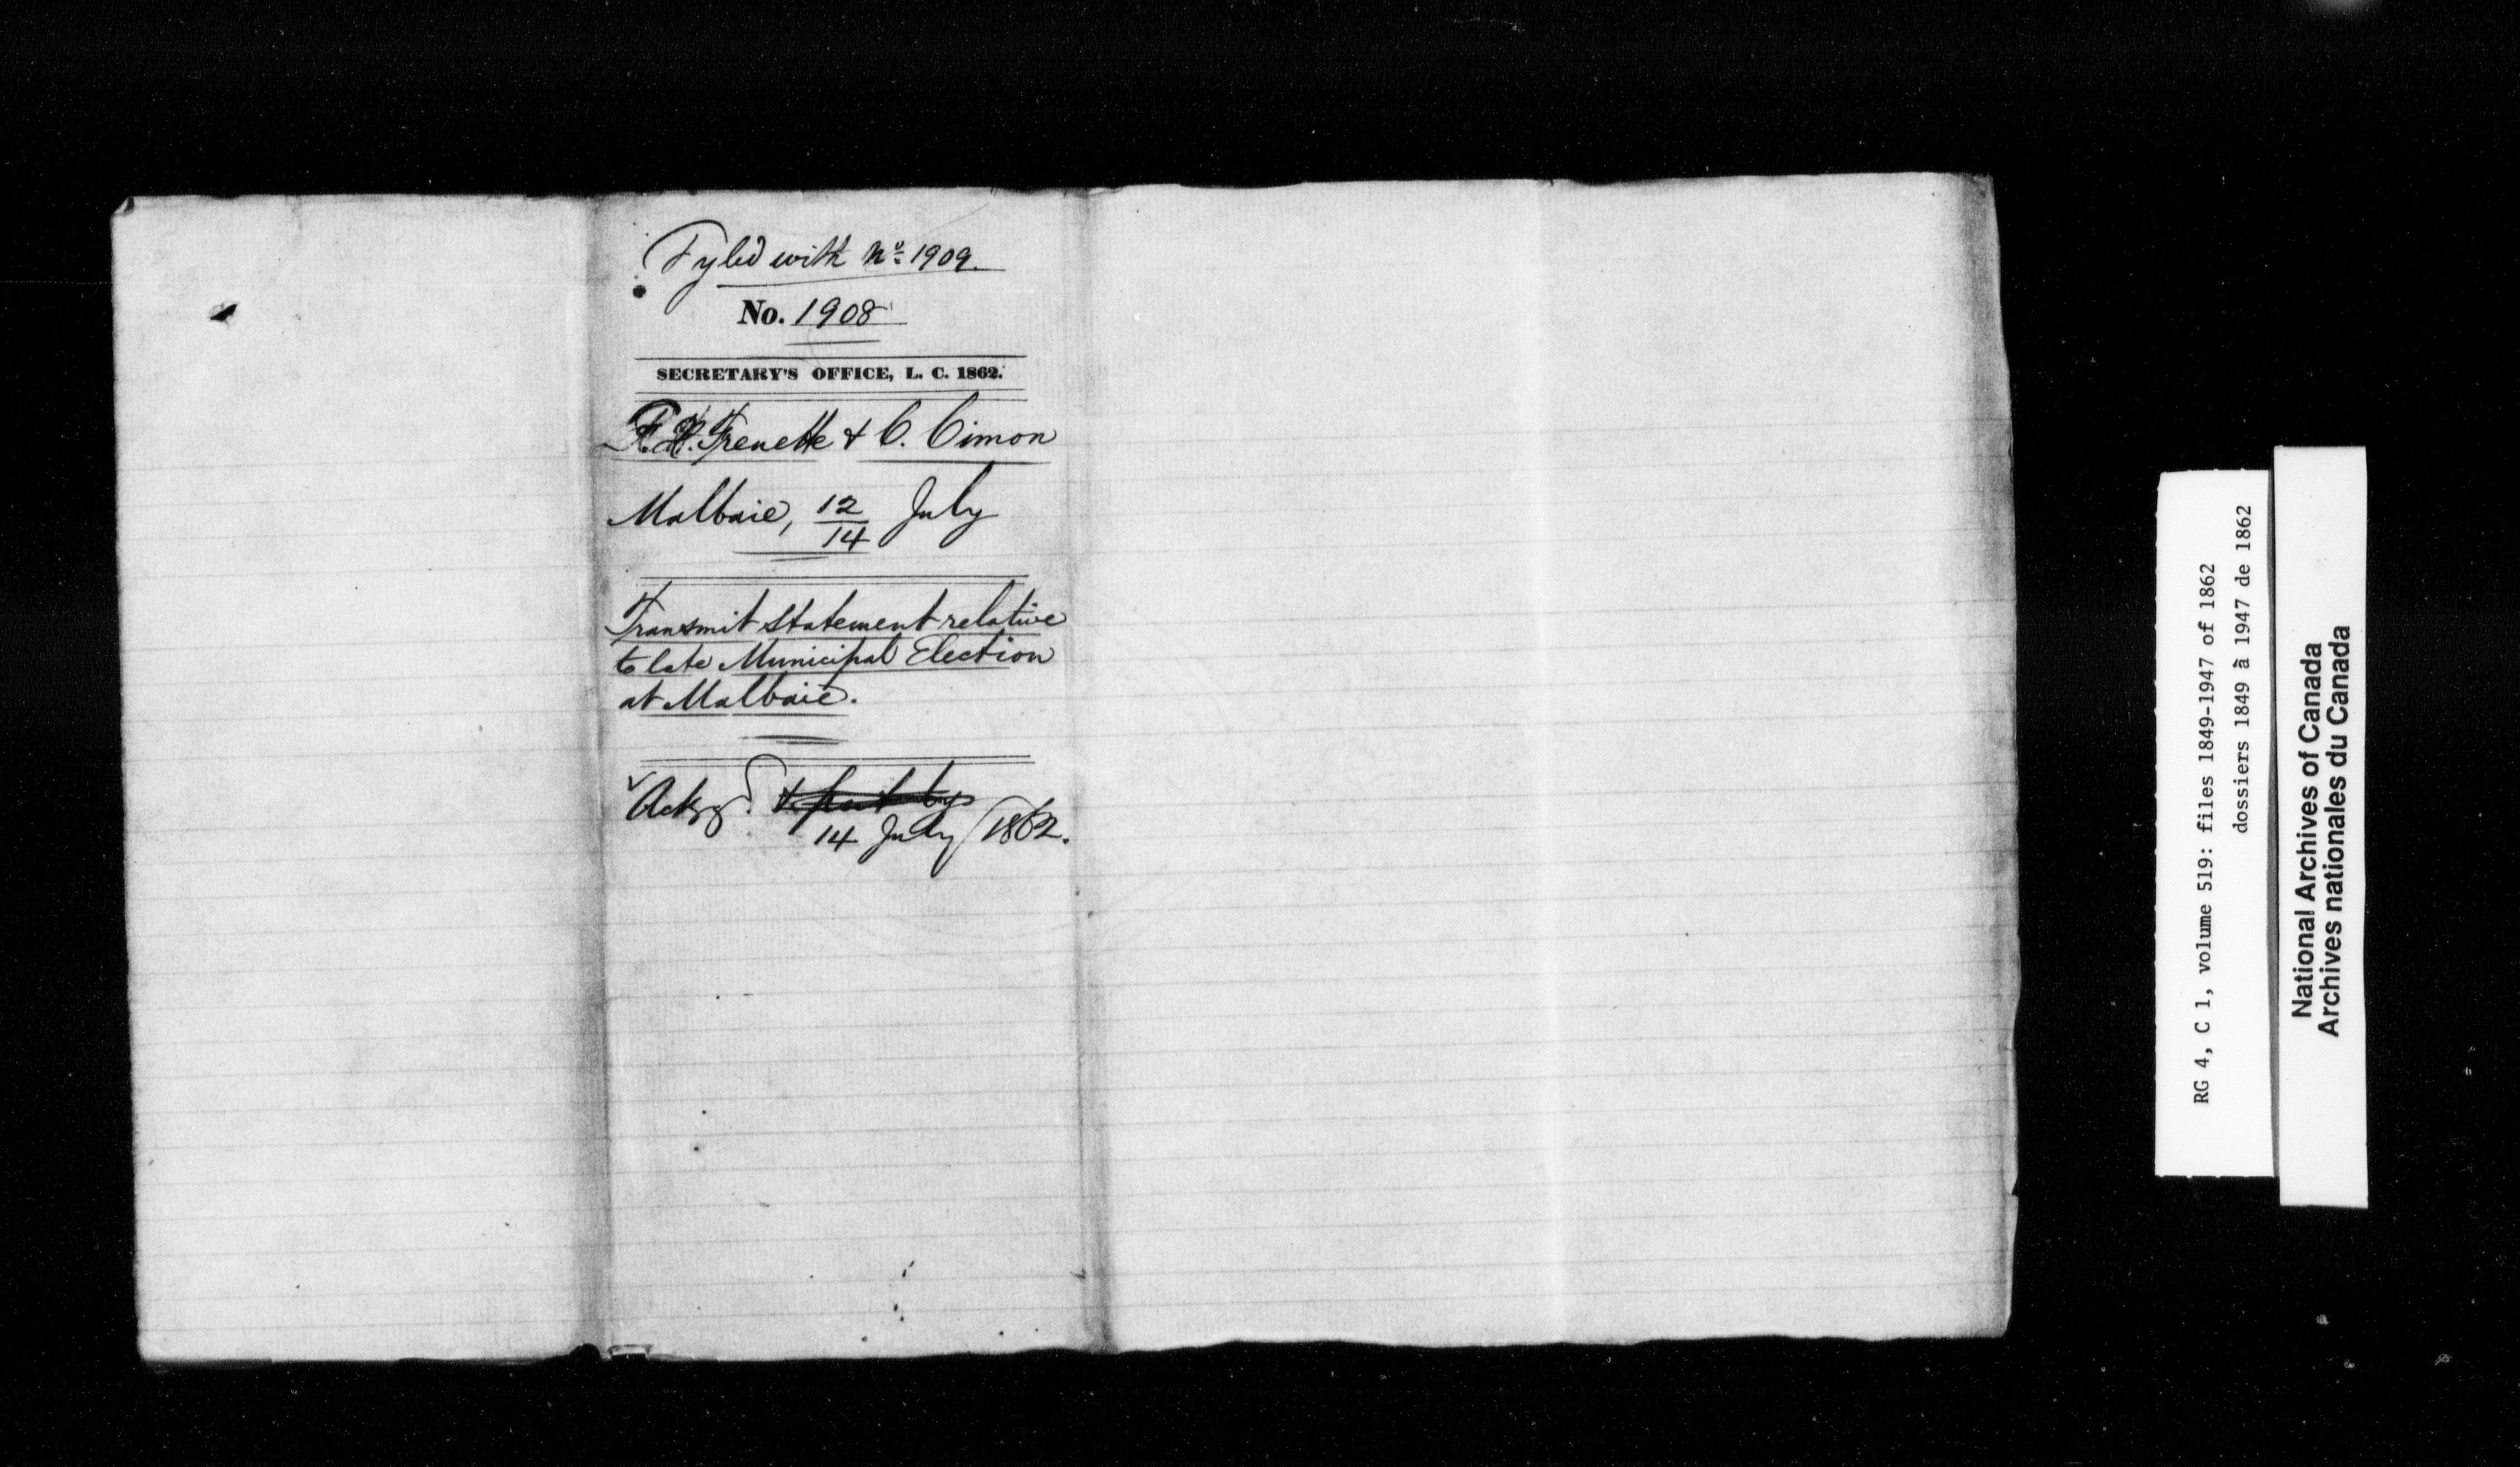 Fyled with No. 1909.
No. 1908
SECRETARY'S OFFICE, L. C. 1862.
Frenette & C. Cimon
Malbaie, 12/14 July
Transmit Statement relative
to late Municipal Election
at Malbaie.
Ackgd. & put by
14 July /1862.
RG 4, C 1, volume 519: files 1849-1947 of 1862
dossiers 1849 à 1947 de 1862
National Archives of Canada
Archives nationales du Canada